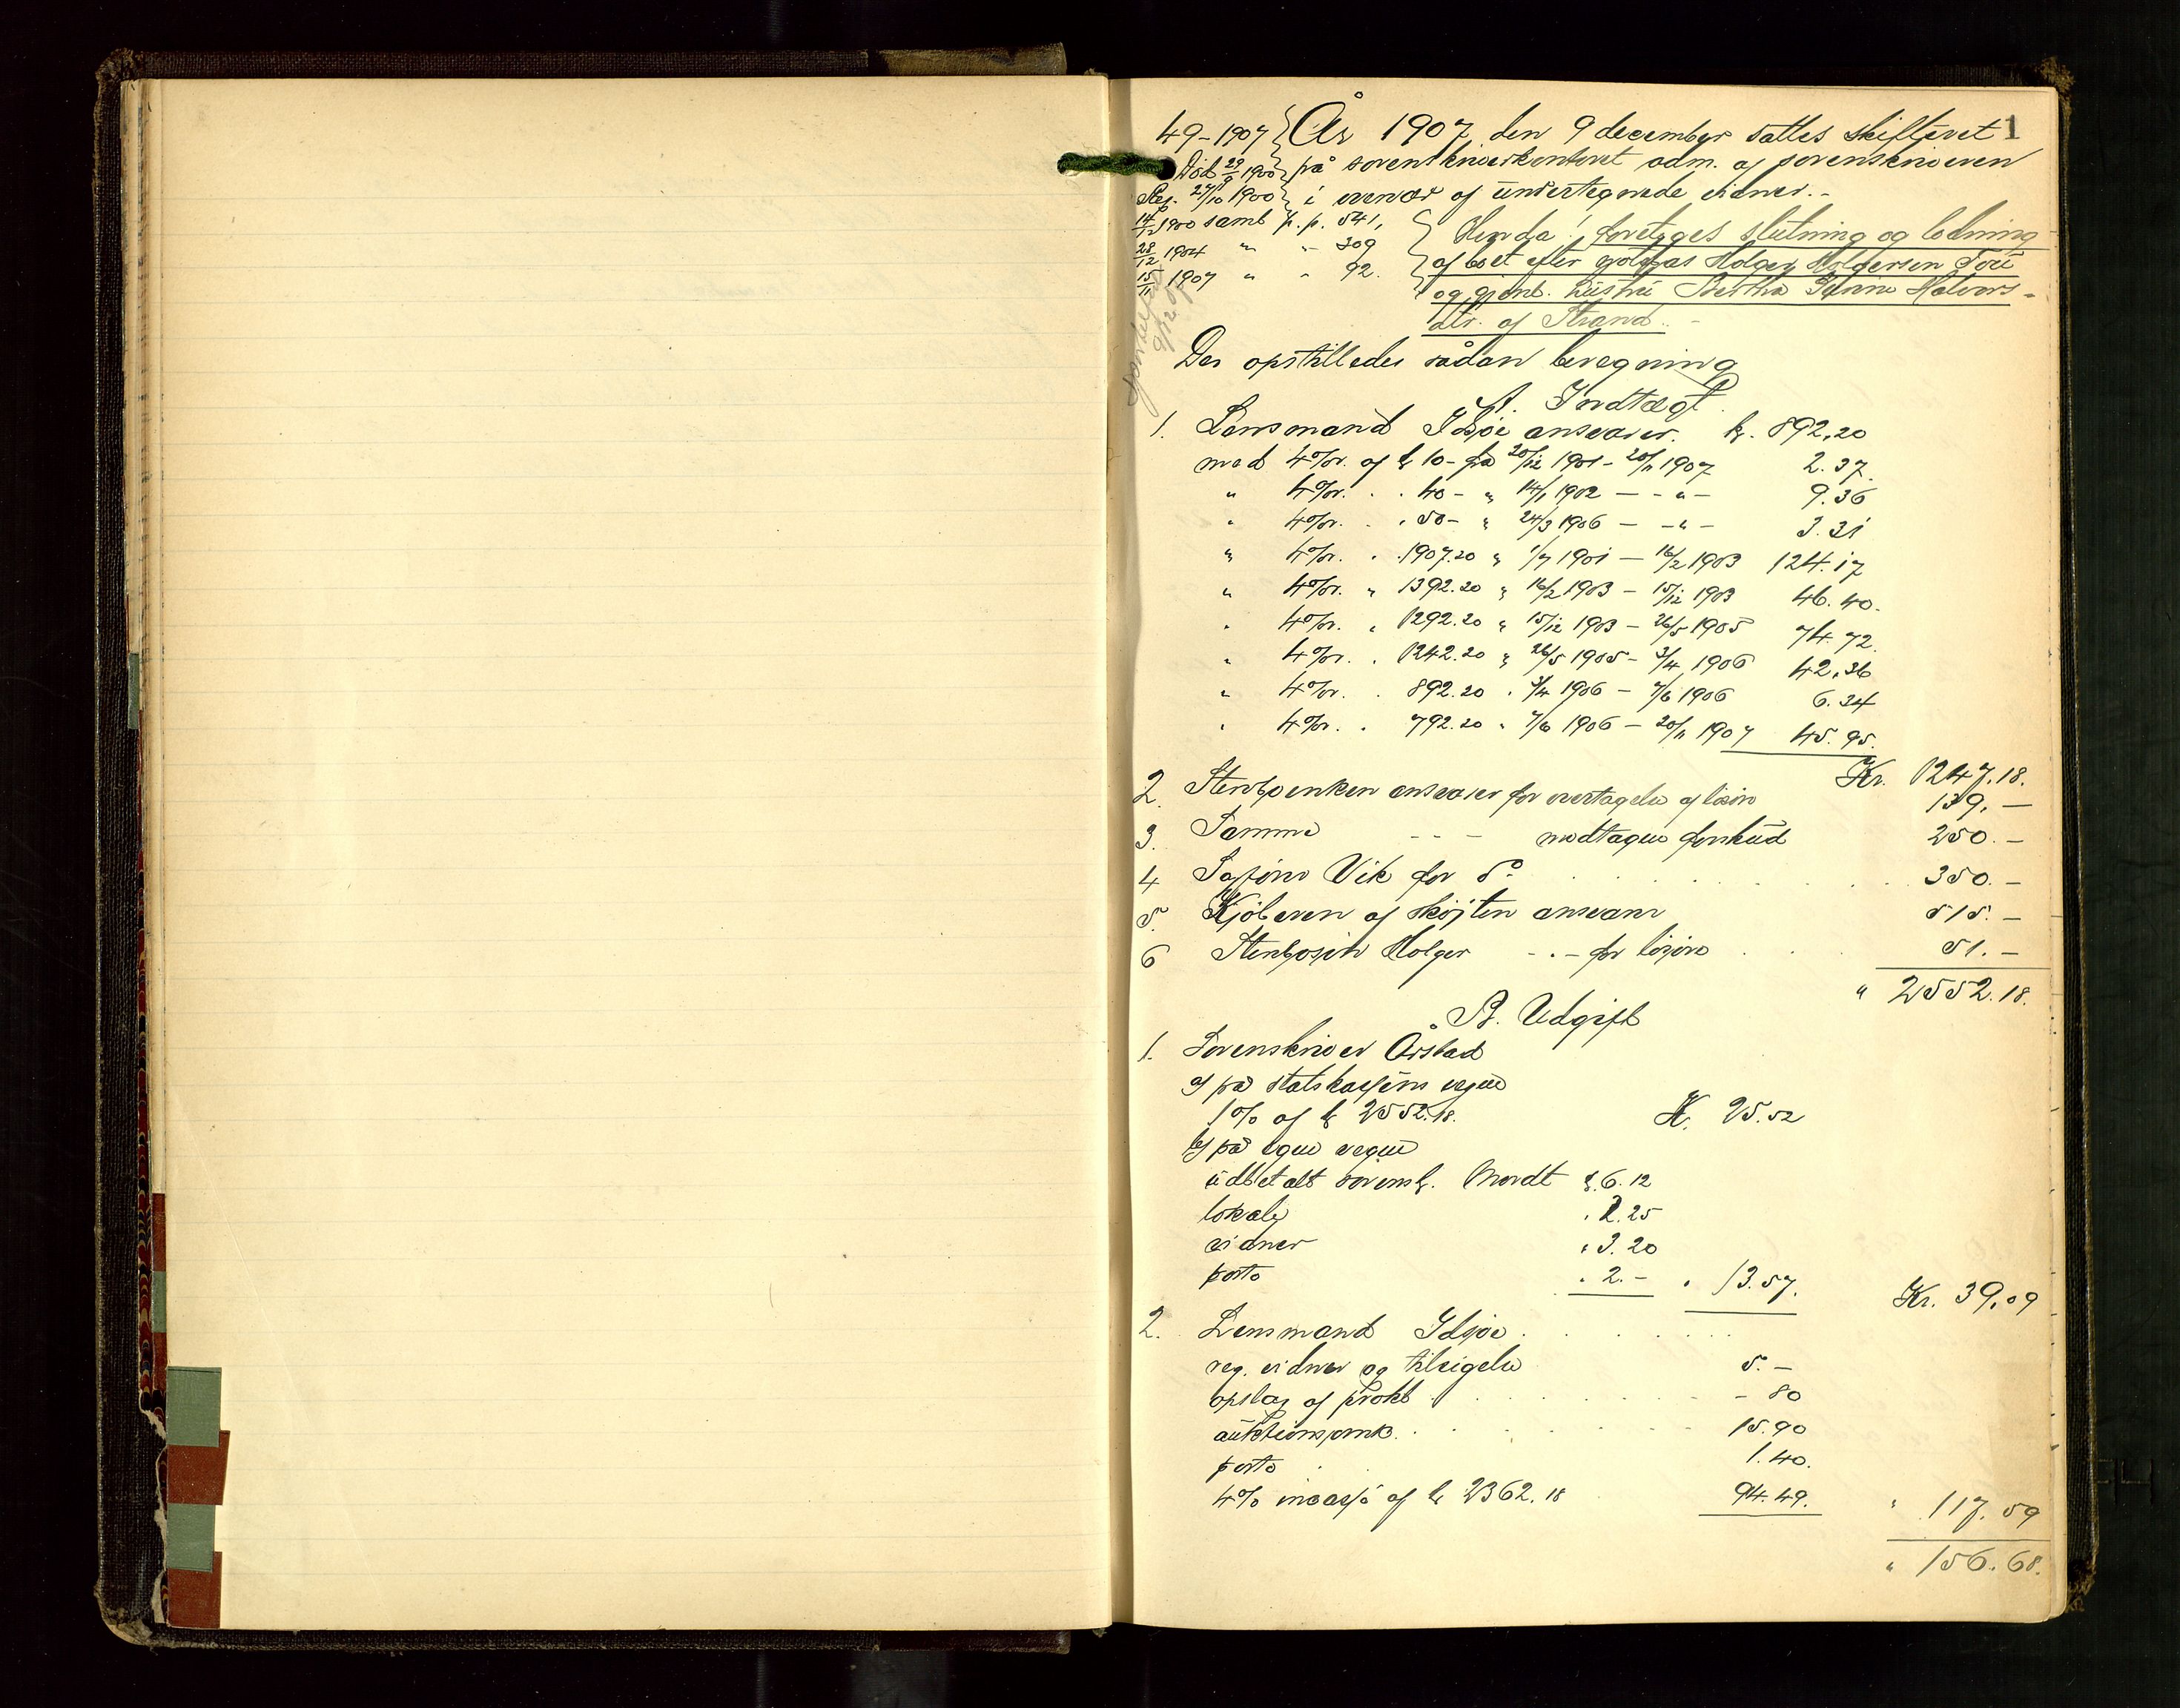 49-1907 } År 1907 den 9 december sattes skifteret 1
Död 29/9 1900 } på sorenskriverkontoret adm. af sorenskriveren
Reg. 27/10 1900 } i overvær af undertegnede vidner. -
14/12 1900 samb p. p. 541,
28/12 1904 " " - 309
15/11 1907 " " 92.
9/12 07
Henda! foretoges slutning og lodning
af boet efter Holger Holgersen Tou
og gjenl. hustru Bertha Halvors-
dtr. af Strand. -
Der opstilledes sådan beregning
A. Indtægt.
1. Lensmand Idsøe ansvarer. kr. 892,20
med 4% r. af kr 10 - fra 20/12 1901 - 20/11 1907 2.37.
" 4% r. . . 40 - " 14/1 1902 - - " - 9.36
" 4% r. . . 50 - " 24/3 1906 - - " - 3.31
" 4% r. . . 1907.20 " 1/7 1901 - 16/2 1903 124.17
" 4% r. " 1392.20 " 16/2 1903 - 15/12 1903 46.40.
" 4% r. " 1292.20 " 15/12 1903 - 26/5 1905 74.72.
" 4% r. . 1242.20 " 26/5 1905 - 3/4 1906 42,36
" 4% r. . 892.20 . 3/4 1906 - 7/6 1906 6.34
" 4% r. . 792.20 " 7/6 1906 - 20/11 1907 45.95.
Kr. 1247,18.
2. Stenbenken ansvarer for overtagelse af løsøre 139. -
3. Samme - - - modtagne forskud 250. -
4 Torbjørn Vik for do . . . . . 350. -
5. Kjöberen af skøjten ansvarer 515. -
6 Holger - . - for løsøre . . . 51. -
" 2552.18.
B. Udgift
1. Sorenskriver Årstad
a) på statskassens vegne
1% af kr 2552.18. Kr. 25.52
b) på egne vegne
udbetalt sorenskr. Mordt kr. 6.12
lokale . 2.25
vidner " 3.20
porto . 2. - . 13.57.
Kr. 39,09
2. Lensmand Idsøe . . . . . .
reg. vidner og tilsigelse 5. -
opslag af prokl . . . . . . - 80
auktionsomk. . . . . . 15.90
porto . 1.40.
4% incasso af kr 2362.18 94.49.
" 117.59
" 156.68.